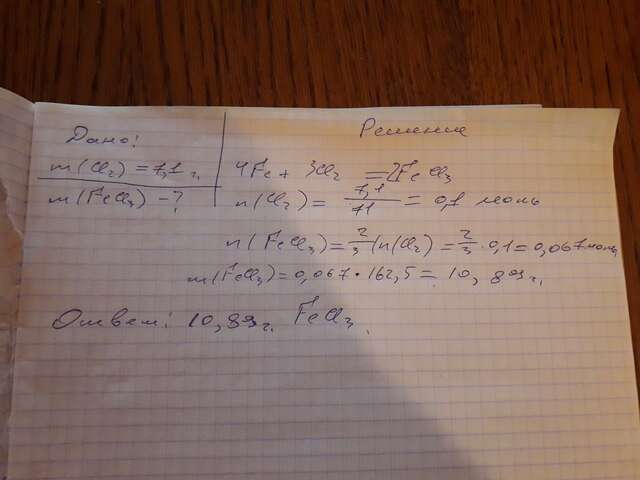 Дано:
Решение
m(Cl₂) = 7,1 г.
m(FeCl₃) - ?
4Fe + 3Cl₂ = 2FeCl₃
n(Cl₂) = 7,1/71 = 0,1 моль
n(FeCl₃) = 2/3 (n(Cl₂) = 2/3 · 0,1 = 0,067 моль
m(FeCl₃) = 0,067 · 162,5 = 10,89 г.
Ответ: 10,89 г. FeCl₃.